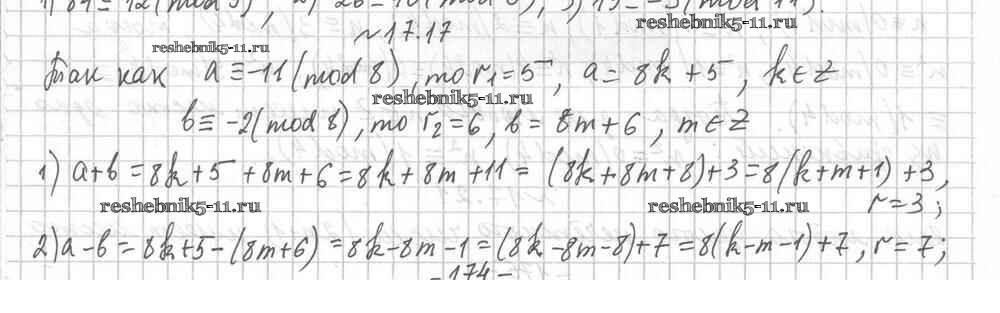 1) 84 ≡ 12 (mod 9), 2) 26 ≡ 10 (mod 8), 3) 19 ≡ -3 (mod 11).
reshebnik5-11.ru
~17.17
reshebnik5-11.ru
Так как a ≡ -11 (mod 8), то r₁ = 5, a = 8k + 5, k ∈ Z
reshebnik5-11.ru
b ≡ -2 (mod 8), то r₂ = 6, b = 8m + 6, m ∈ Z
1) a+b = 8k+5+8m+6 = 8k+8m+11 = (8k+8m+8)+3 = 8(k+m+1)+3,
reshebnik5-11.ru reshebnik5-11.ru
r = 3;
2) a-b = 8k+5-(8m+6) = 8k-8m-1 = (8k-8m-8)+7 = 8(k-m-1)+7, r = 7;
-174-